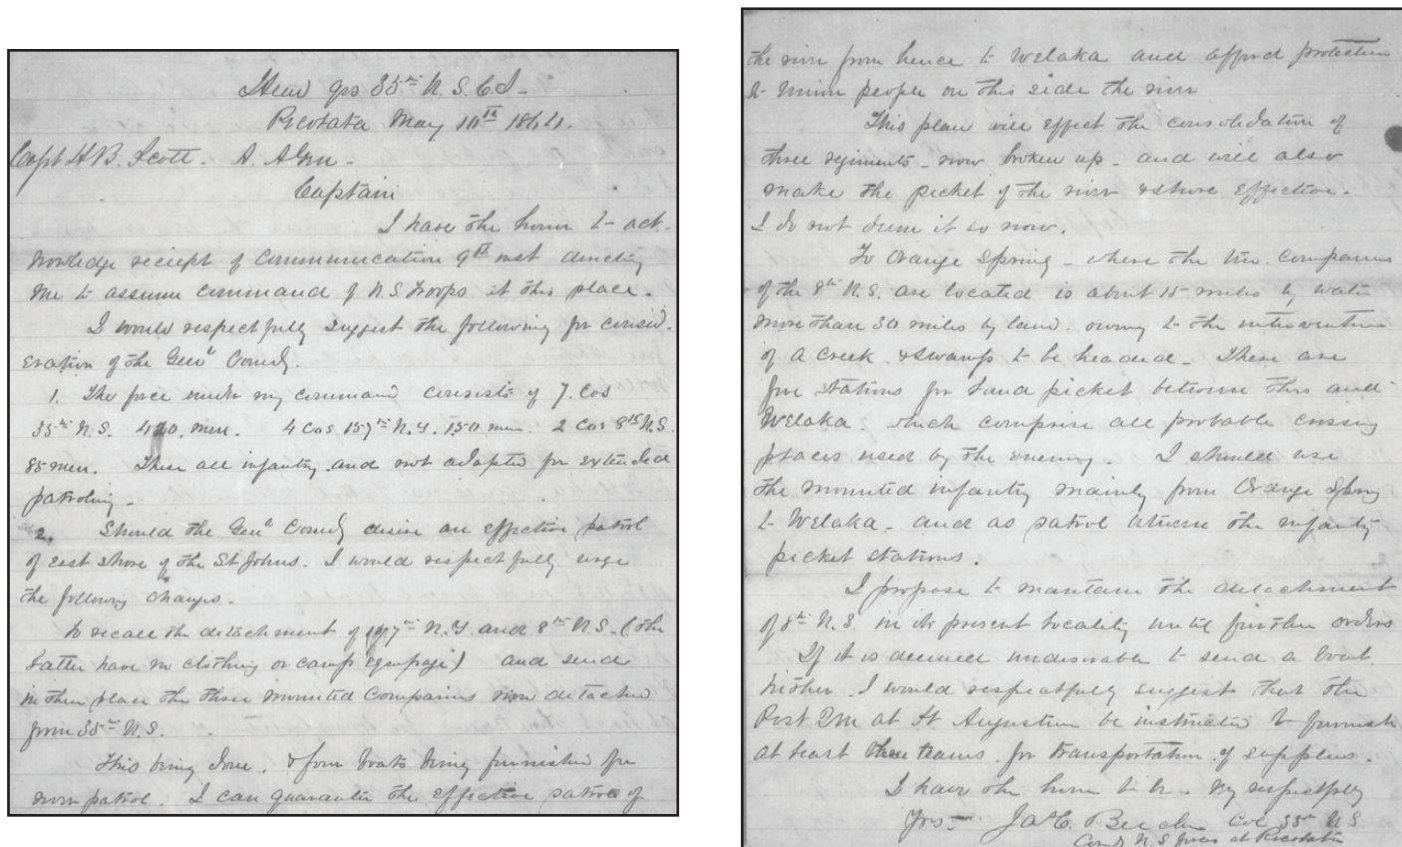 Head qrs 35th U.S.C.T.
Picolata May 10th 1864.
Capt H B. Scott. A. A Gen -
Captain
I have the honor to ack-
nowledge reciept of Communication 9th inst directing
me to assume command of U.S. troops at this place.
I would respectfully suggest the following for consid-
eration of the Genl Comdg.
1. The force under my command consists of 7. Cos
35th U.S. 420. men. 4 Cos 157th N.Y. 150 men. 2 Cos 8th U.S.
85 men. These all infantry and not adapted for extended
patroling -
2. Should the Genl Comdg desire an effective patrol
of east shore of the St Johns. I would respectfully urge
the following changes.
To recall the detachment of 157th N.Y. and 8th U.S. (the
latter have no clothing or camp equipage) and send
in their place the three mounted Companies now detached
from 35th U.S.
This being done. & four boats being furnished for
river patrol. I can guarantee the effective patrol of
the river from hence to Welaka and afford protection
to Union people on this side the river
This plan will effect the consolidation of
three regiments - now broken up - and will also
make the picket of the river & shore effective.
I do not deem it so now.
To Orange Spring - where the two companies
of the 8th U.S. are located is about 15 miles by water
more than 30 miles by land. owing to the intervention
of a creek & swamp to be headed - There are
five stations for land picket between this and
Welaka which comprise all probable crossing
places used by the enemy. I should use
the mounted infantry mainly from Orange Spring
to Welaka - and as patrol between the infantry
picket stations.
I propose to maintain the detachment
of 8th U.S. in its present locality until further orders
If it is deemed undesirable to send a boat
hither. I would respectfully suggest that the
Post QM at St Augustine be instructed to furnish
at least three teams for transportation of supplies.
I have the honor to be - vy respectfully
Yrs - Jas C. Beecher Col 35th U S
Comdg U.S forces at Picolata